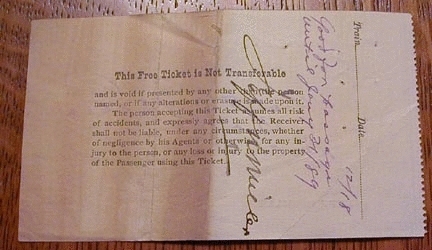 This Free Ticket is Not Transferable
and is void if presented by any other than the person
named, or if any alterations or erasure is made upon it.
The person accepting this Ticket assumes all risk
of accidents, and expressly agrees that the Receiver
shall not be liable, under any circumstances, whether
of negligence by his Agents or otherwise for any in-
jury to the person, or any loss or injury to the property
of the Passenger using this Ticket.
Train Date 12/18
Good for passage
until Jany 2d/89